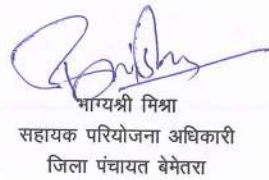 भाग्यश्री मिश्रा
सहायक परियोजना अधिकारी
जिला पंचायत बेमेतरा